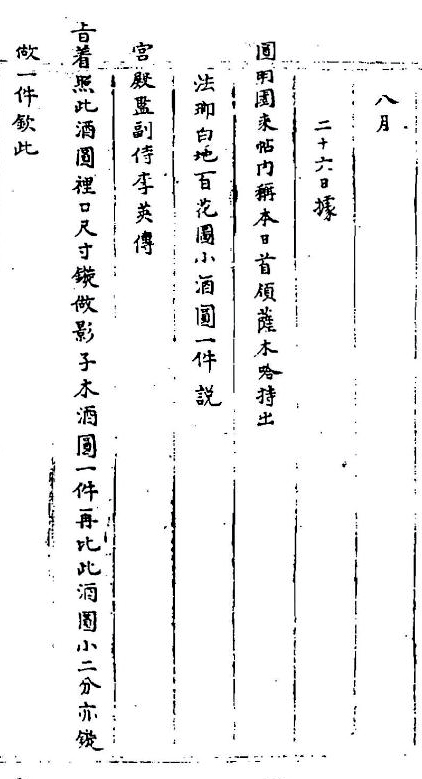 八月
二十六日據
圓明園來帖內稱本日首領薩木哈持出
法瑯白地百花圖小酒圓一件說
宮殿監副侍李英傳
旨着照此酒圓裡口尺寸鏇做影子木酒圓一件再比此酒圓小二分亦鏇
做一件欽此